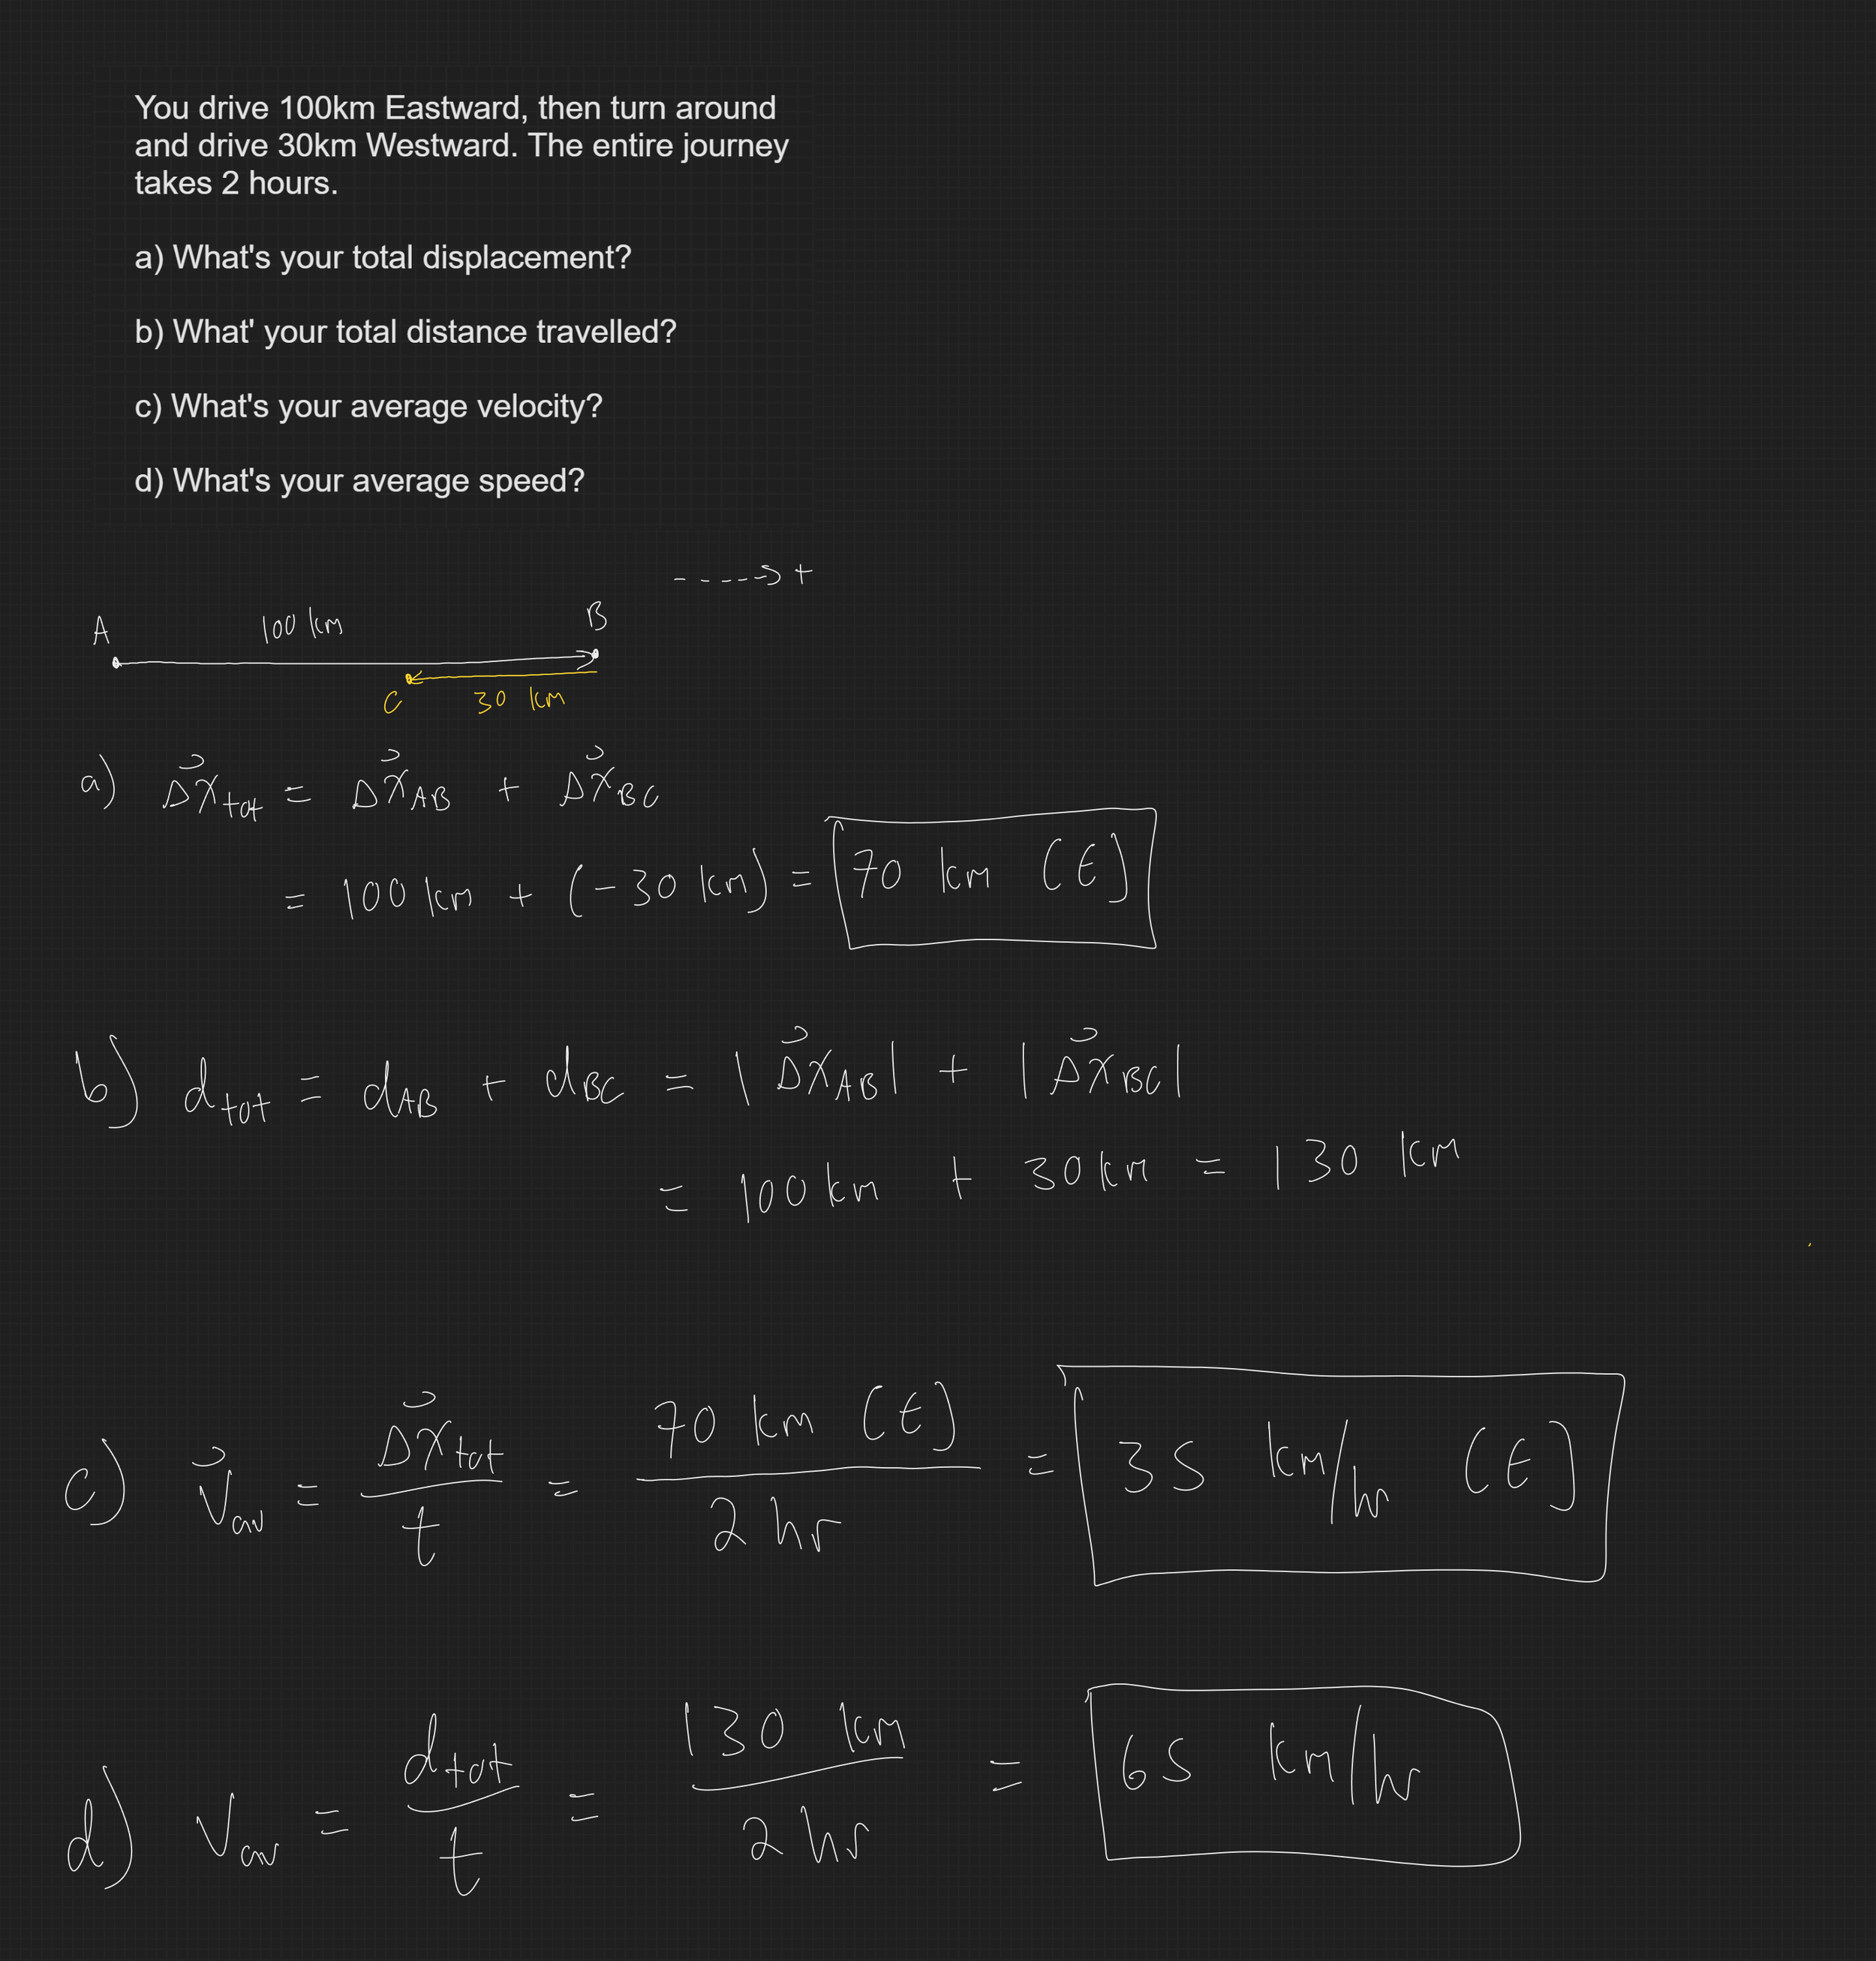 You drive 100km Eastward, then turn around
and drive 30km Westward. The entire journey
takes 2 hours.
a) What's your total displacement?
b) What' your total distance travelled?
c) What's your average velocity?
d) What's your average speed?
----> +
A 100 km B
C 30 km
a) Δx⃗tot = Δx⃗AB + Δx⃗BC
= 100 km + (-30 km) = 70 km (E)
b) dtot = dAB + dBC = |Δx⃗AB| + |Δx⃗BC|
= 100 km + 30 km = 130 km
c) v⃗av = Δx⃗tot / t = 70 km (E) / 2 hr = 35 km/hr (E)
d) vav = dtot / t = 130 km / 2 hr = 65 km/hr